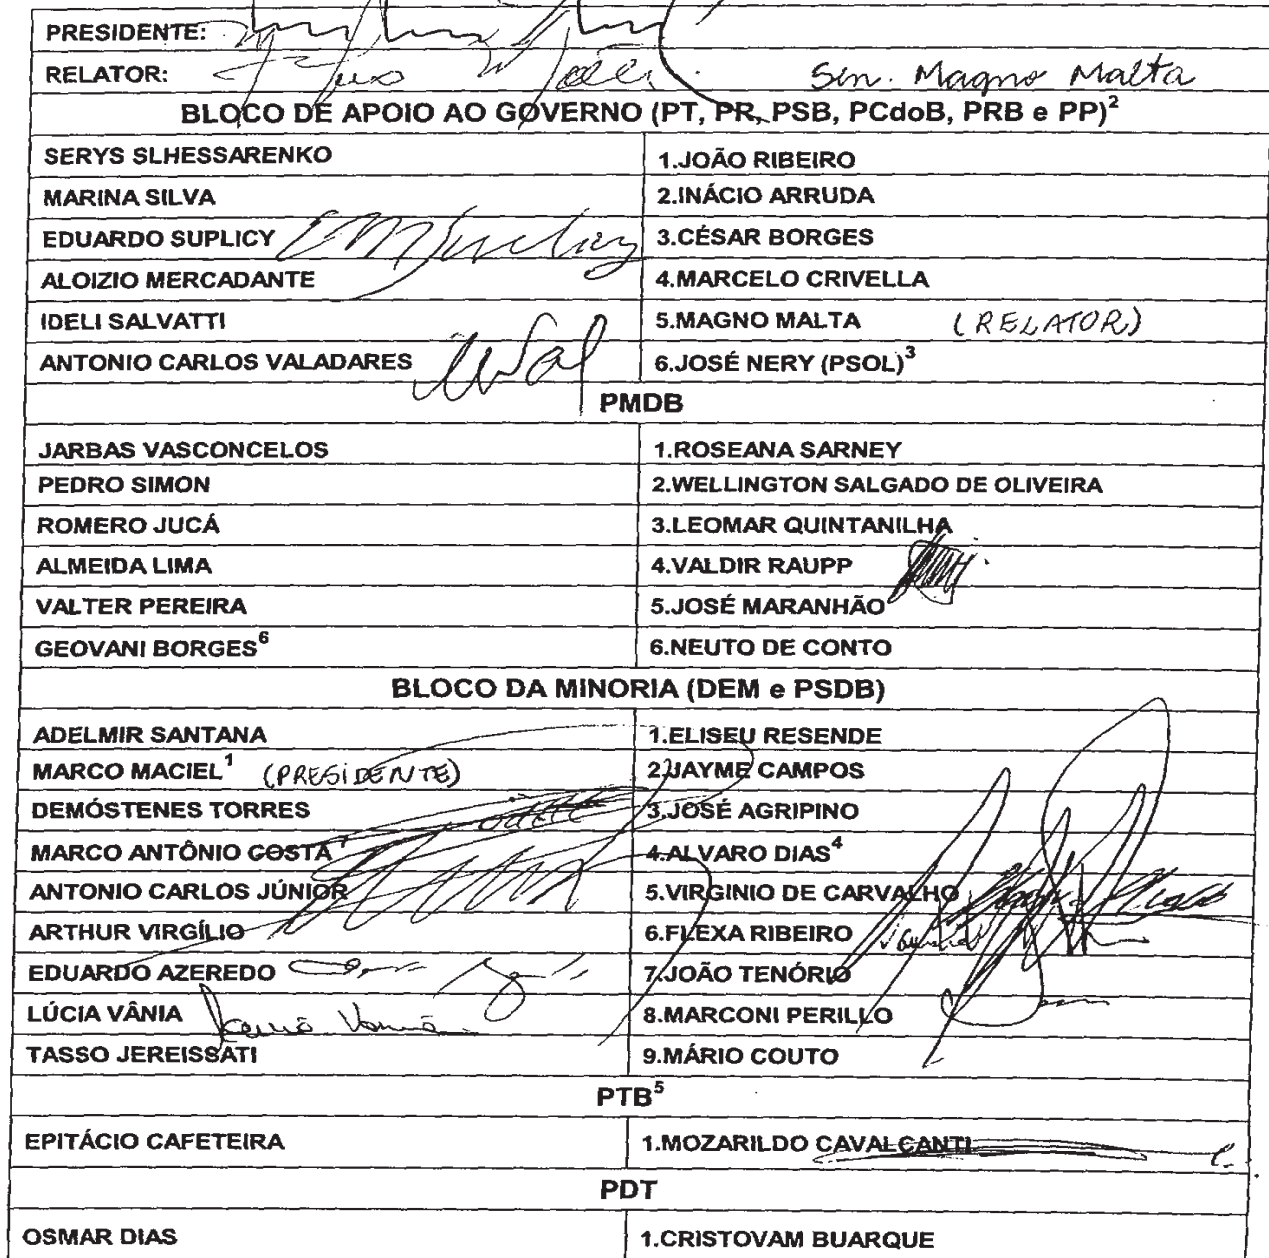 PRESIDENTE:
RELATOR: Sen. Magno Malta
BLOCO DE APOIO AO GOVERNO (PT, PR, PSB, PCdoB, PRB e PP)²
SERYS SLHESSARENKO 1.JOÃO RIBEIRO
MARINA SILVA 2.INÁCIO ARRUDA
EDUARDO SUPLICY 3.CÉSAR BORGES
ALOIZIO MERCADANTE 4.MARCELO CRIVELLA
IDELI SALVATTI 5.MAGNO MALTA (RELATOR)
ANTONIO CARLOS VALADARES 6.JOSÉ NERY (PSOL)³
PMDB
JARBAS VASCONCELOS 1.ROSEANA SARNEY
PEDRO SIMON 2.WELLINGTON SALGADO DE OLIVEIRA
ROMERO JUCÁ 3.LEOMAR QUINTANILHA
ALMEIDA LIMA 4.VALDIR RAUPP
VALTER PEREIRA 5.JOSÉ MARANHÃO
GEOVANI BORGES⁶ 6.NEUTO DE CONTO
BLOCO DA MINORIA (DEM e PSDB)
ADELMIR SANTANA 1.ELISEU RESENDE
MARCO MACIEL¹ (PRESIDENTE) 2.JAYME CAMPOS
DEMÓSTENES TORRES 3.JOSÉ AGRIPINO
MARCO ANTÔNIO COSTA 4.ALVARO DIAS⁴
ANTONIO CARLOS JÚNIOR 5.VIRGINIO DE CARVALHO
ARTHUR VIRGÍLIO 6.FLEXA RIBEIRO
EDUARDO AZEREDO 7.JOÃO TENÓRIO
LÚCIA VÂNIA 8.MARCONI PERILLO
TASSO JEREISSATI 9.MÁRIO COUTO
PTB⁵
EPITÁCIO CAFETEIRA 1.MOZARILDO CAVALCANTI
PDT
OSMAR DIAS 1.CRISTOVAM BUARQUE